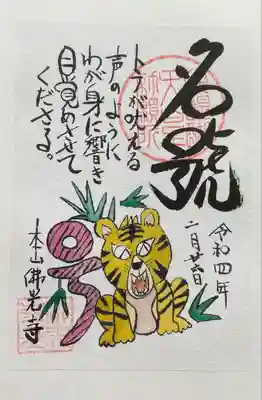 名號
トラが吠える
声のように
わが身に響き
目覚めさせて
くださる。
号
令和四年
二月廿六日
本山佛光寺